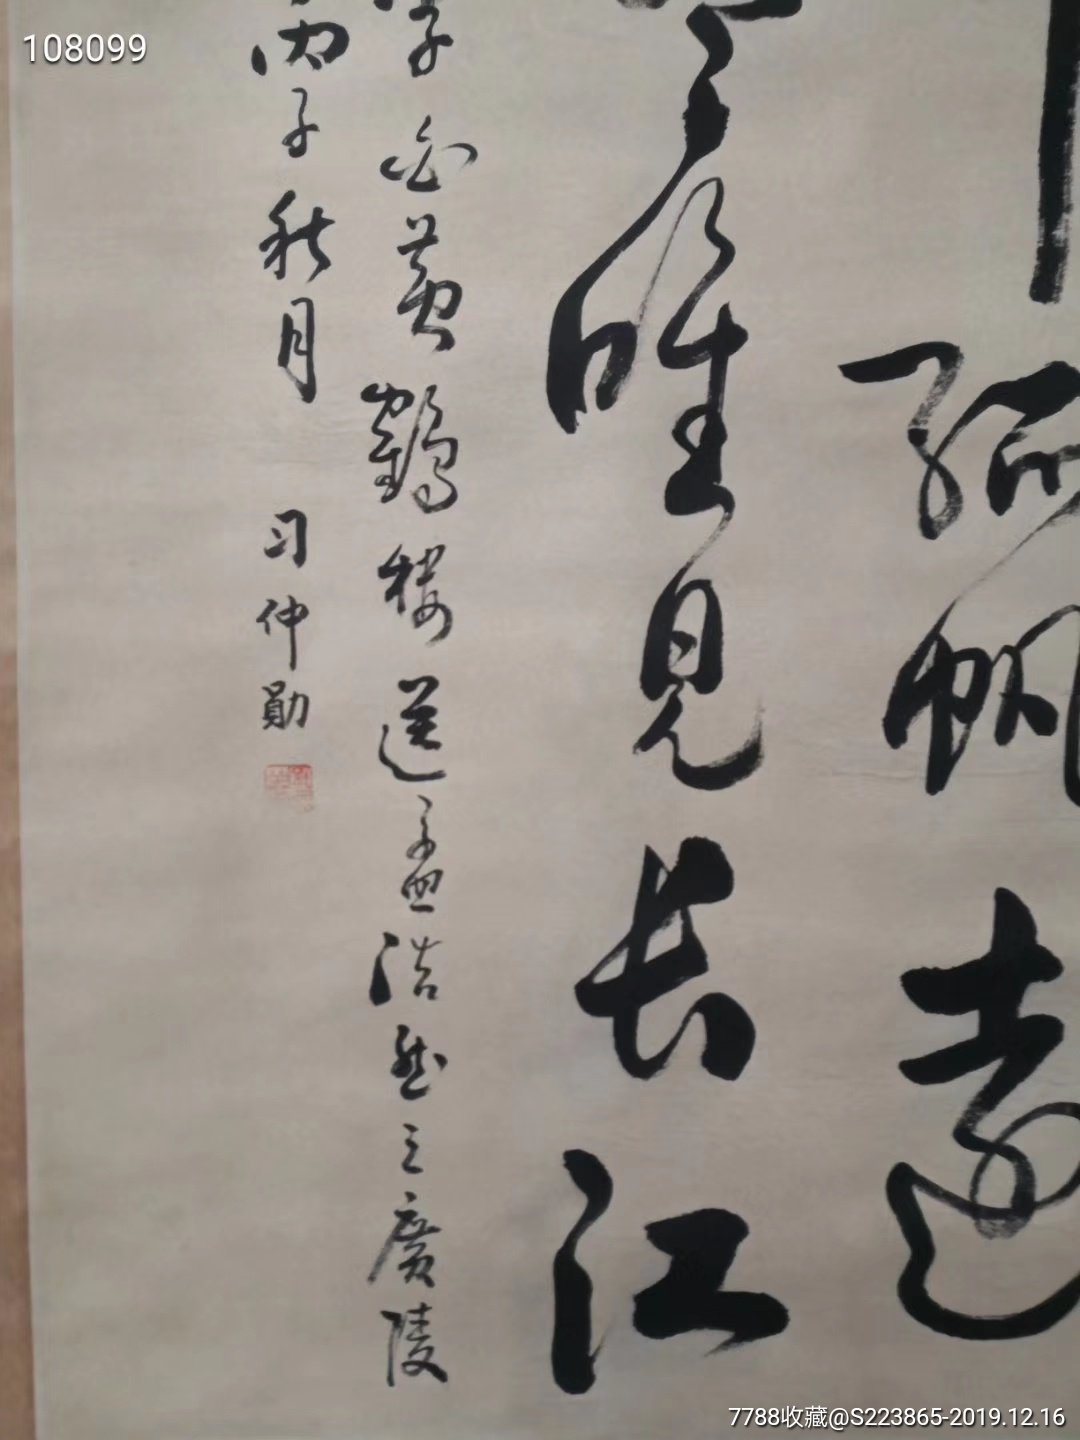 108099
孤帆遠
唯見长江
李白黄鶴楼送孟浩然之廣陵
丙子秋月 习仲勋
7788收藏@S223865-2019.12.16